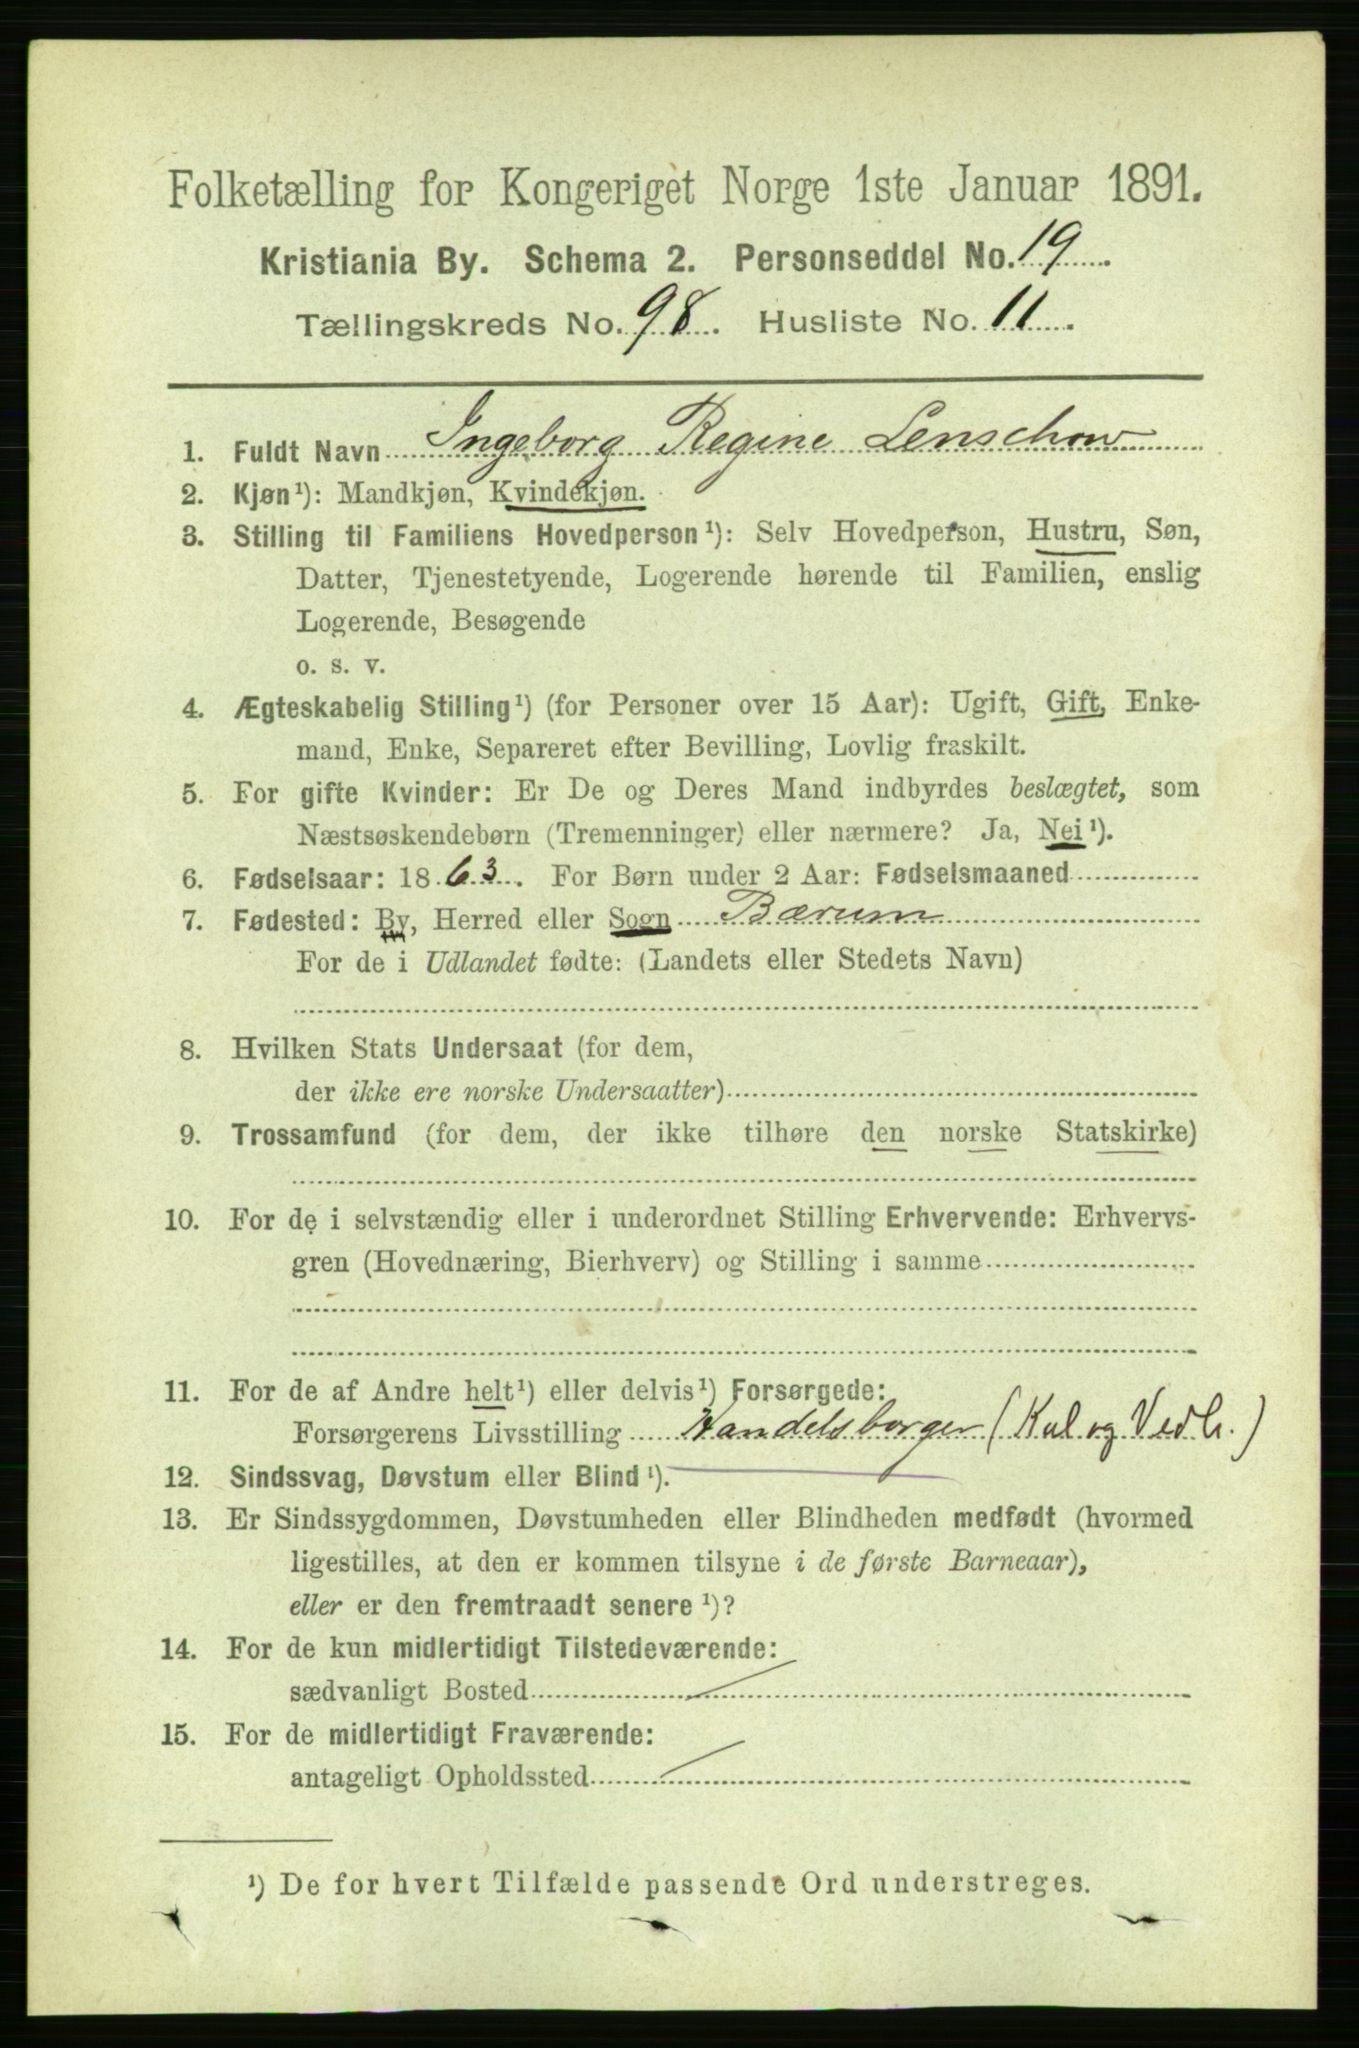 Folketælling for Kongeriget Norge 1ste Januar 1891.
Kristiania By. Schema 2. Personseddel No. 19.
Tællingskreds No. 98. Husliste No. 11.
1. Fuldt Navn Ingeborg Regine Lenschow
2. Kjøn¹): Mandkjøn, Kvindekjøn.
3. Stilling til Familiens Hovedperson¹): Selv Hovedperson, Hustru, Søn,
Datter, Tjenestetyende, Logerende hørende til Familien, enslig
Logerende, Besøgende
o. s. v.
4. Ægteskabelig Stilling¹) (for Personer over 15 Aar): Ugift, Gift, Enke-
mand, Enke, Separeret efter Bevilling, Lovlig fraskilt.
5. For gifte Kvinder: Er De og Deres Mand indbyrdes beslægtet, som
Næstsøskendebørn (Tremenninger) eller nærmere? Ja, Nei¹).
6. Fødselsaar: 1863. For Børn under 2 Aar: Fødselsmaaned
7. Fødested: By, Herred eller Sogn Bærum
For de i Udlandet fødte: (Landets eller Stedets Navn)
8. Hvilken Stats Undersaat (for dem,
der ikke ere norske Undersaatter)
9. Trossamfund (for dem, der ikke tilhøre den norske Statskirke)
10. For de i selvstændig eller i underordnet Stilling Erhvervende: Erhvervs-
gren (Hovednæring, Bierhverv) og Stilling i samme
11. For de af Andre helt¹) eller delvis¹) Forsørgede:
Forsørgerens Livsstilling Handelsborger (Kul og Vedh.)
12. Sindssvag, Døvstum eller Blind¹).
13. Er Sindssygdommen, Døvstumheden eller Blindheden medfødt (hvormed
ligestilles, at den er kommen tilsyne i de første Barneaar),
eller er den fremtraadt senere¹)?
14. For de kun midlertidigt Tilstedeværende:
sædvanligt Bosted
15. For de midlertidigt Fraværende:
antageligt Opholdssted
¹) De for hvert Tilfælde passende Ord understreges.